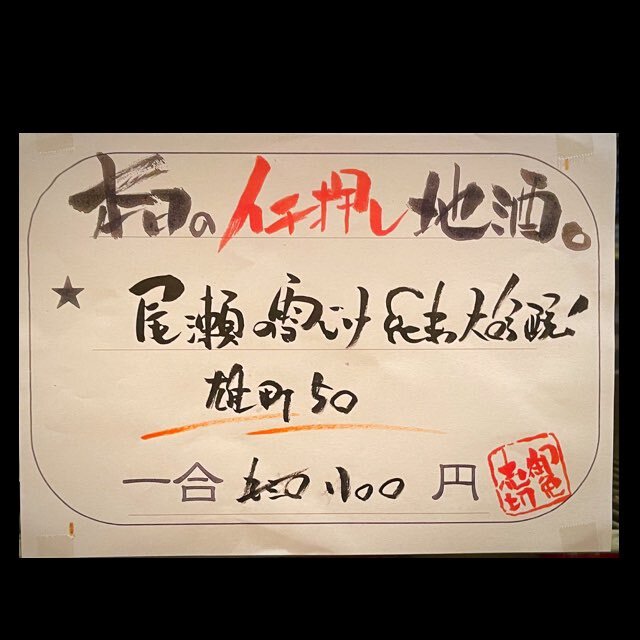 本日のイチ押し地酒。
★ 尾瀬の雪どけ 純米大吟醸!
雄町50
一合 1100 円